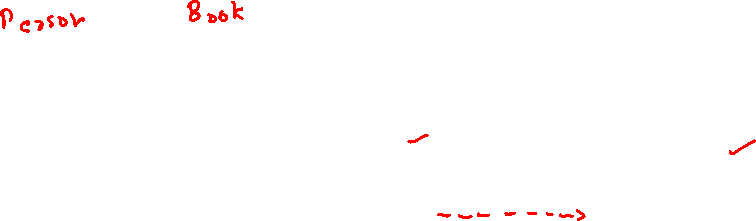 Person Book